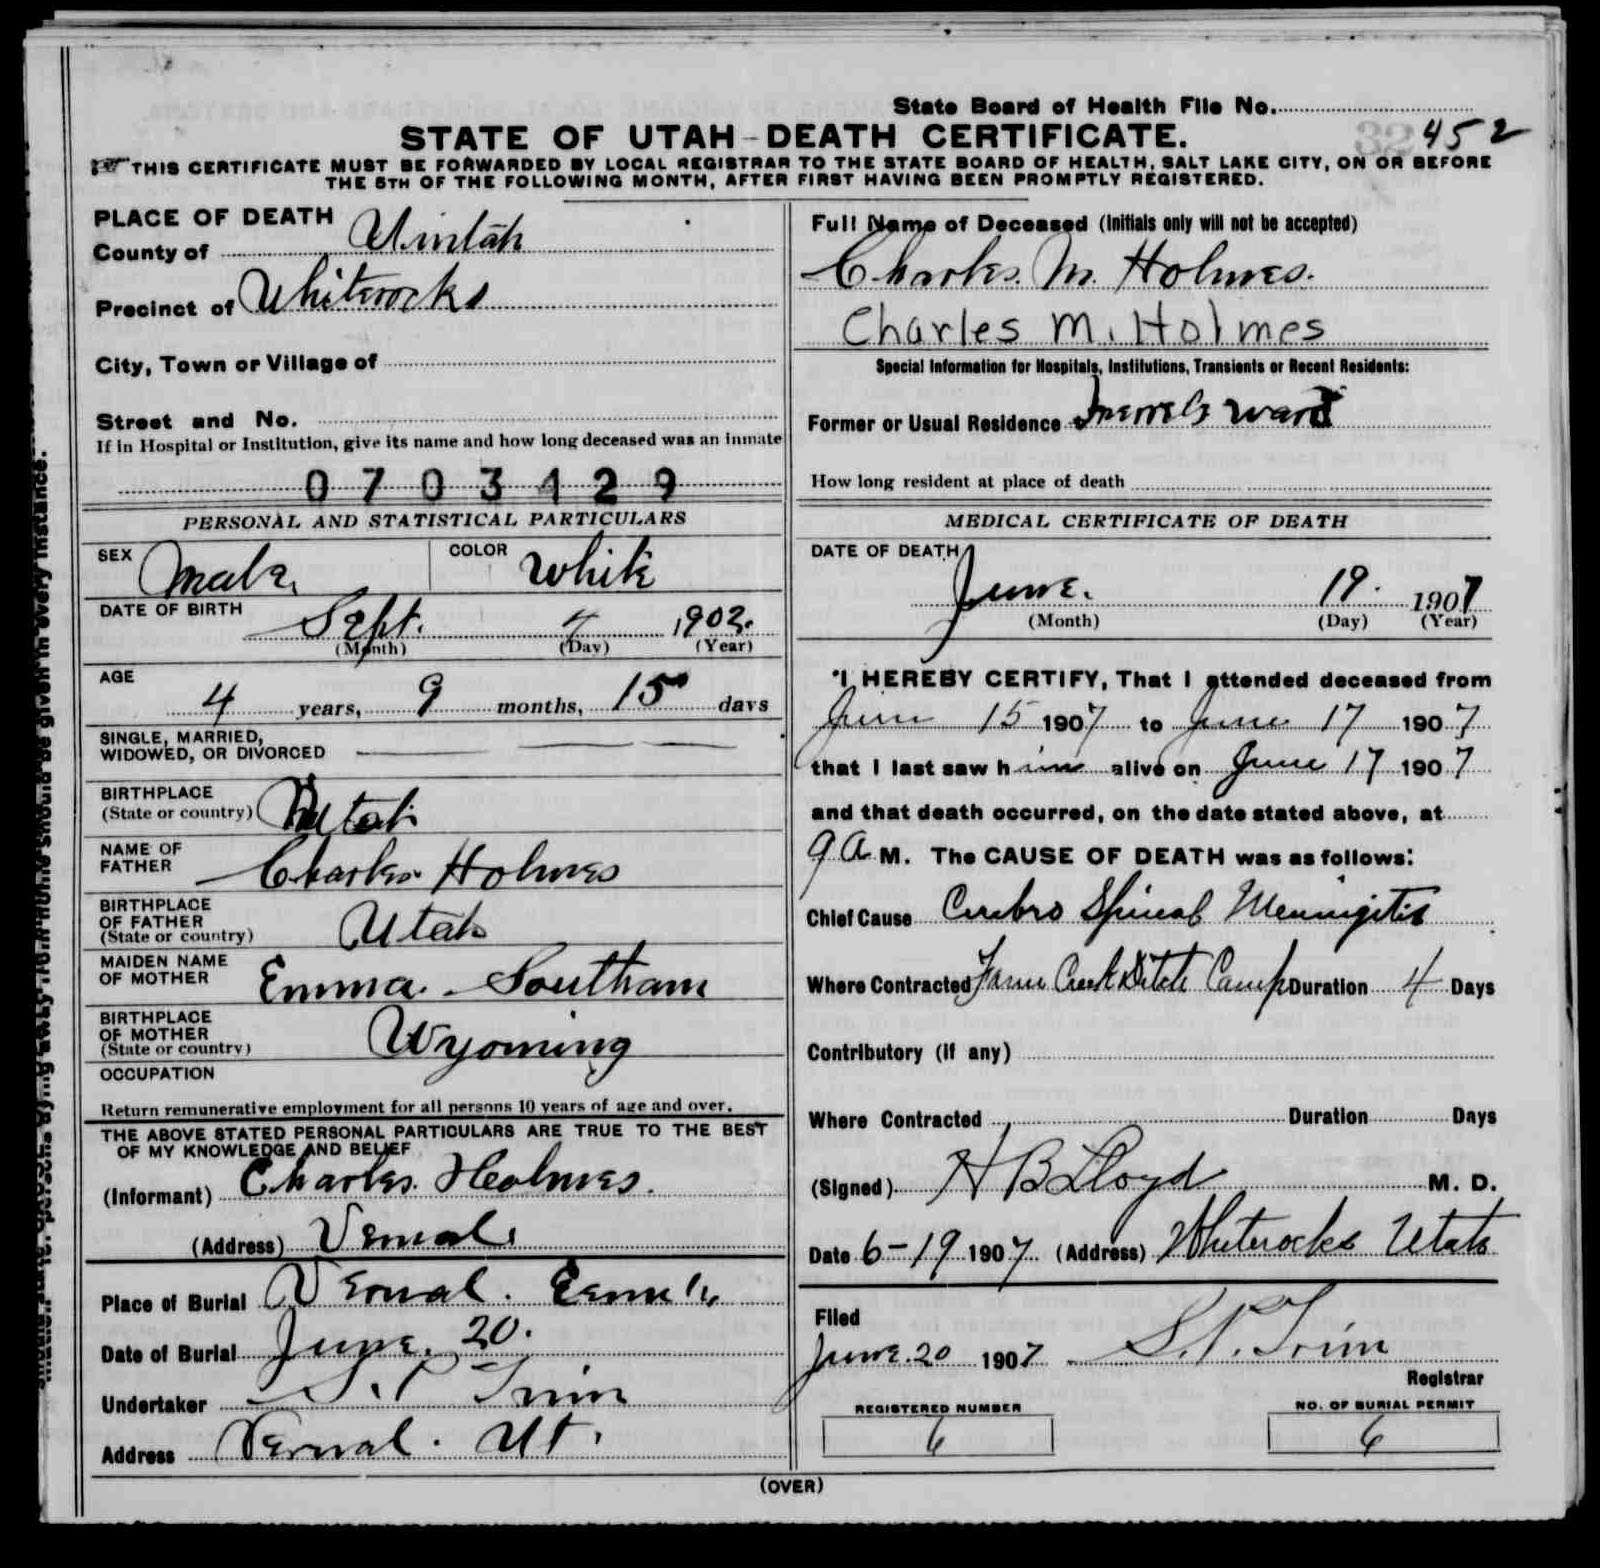 State Board of Health File No.
STATE OF UTAH-DEATH CERTIFICATE.
32 452
THIS CERTIFICATE MUST BE FORWARDED BY LOCAL REGISTRAR TO THE STATE BOARD OF HEALTH, SALT LAKE CITY, ON OR BEFORE
THE 5TH OF THE FOLLOWING MONTH, AFTER FIRST HAVING BEEN PROMPTLY REGISTERED.
PLACE OF DEATH
County of Uintah
Precinct of Whiterocks
City, Town or Village of
Street and No.
If in Hospital or Institution, give its name and how long deceased was an inmate
0703429
PERSONAL AND STATISTICAL PARTICULARS
SEX Male COLOR White
DATE OF BIRTH Sept. 4 1902.
(Month) (Day) (Year)
AGE
4 years, 9 months, 15 days
SINGLE, MARRIED,
WIDOWED, OR DIVORCED
BIRTHPLACE
(State or country) Utah
NAME OF
FATHER Charles Holmes
BIRTHPLACE
OF FATHER
(State or country) Utah
MAIDEN NAME
OF MOTHER Emma Southam
BIRTHPLACE
OF MOTHER
(State or country) Wyoming
OCCUPATION
Return remunerative employment for all persons 10 years of age and over.
THE ABOVE STATED PERSONAL PARTICULARS ARE TRUE TO THE BEST
OF MY KNOWLEDGE AND BELIEF
(Informant) Charles Holmes.
(Address) Vernal
Place of Burial Vernal.
Date of Burial June. 20.
Undertaker S. P. Trim
Address Vernal. Ut.
Full Name of Deceased (Initials only will not be accepted)
Charles. M. Holmes.
Charles M. Holmes
Special Information for Hospitals, Institutions, Transients or Recent Residents:
Former or Usual Residence Ward
How long resident at place of death
MEDICAL CERTIFICATE OF DEATH
DATE OF DEATH
June. 19. 1907
(Month) (Day) (Year)
I HEREBY CERTIFY, That I attended deceased from
June 15 1907 to June 17 1907
that I last saw him alive on June 17 1907
and that death occurred, on the date stated above, at
9 a M. The CAUSE OF DEATH was as follows:
Chief Cause Cerebro Spinal Meningitis
Where Contracted Farm Creek Ditch Camp Duration 4 Days
Contributory (if any)
Where Contracted Duration Days
(Signed) H B Lloyd M. D.
Date 6-19 1907 (Address) Whiterocks Utah
Filed
June 20 1907 S. P. Trim
Registrar
REGISTERED NUMBER NO. OF BURIAL PERMIT
6 6
(OVER)